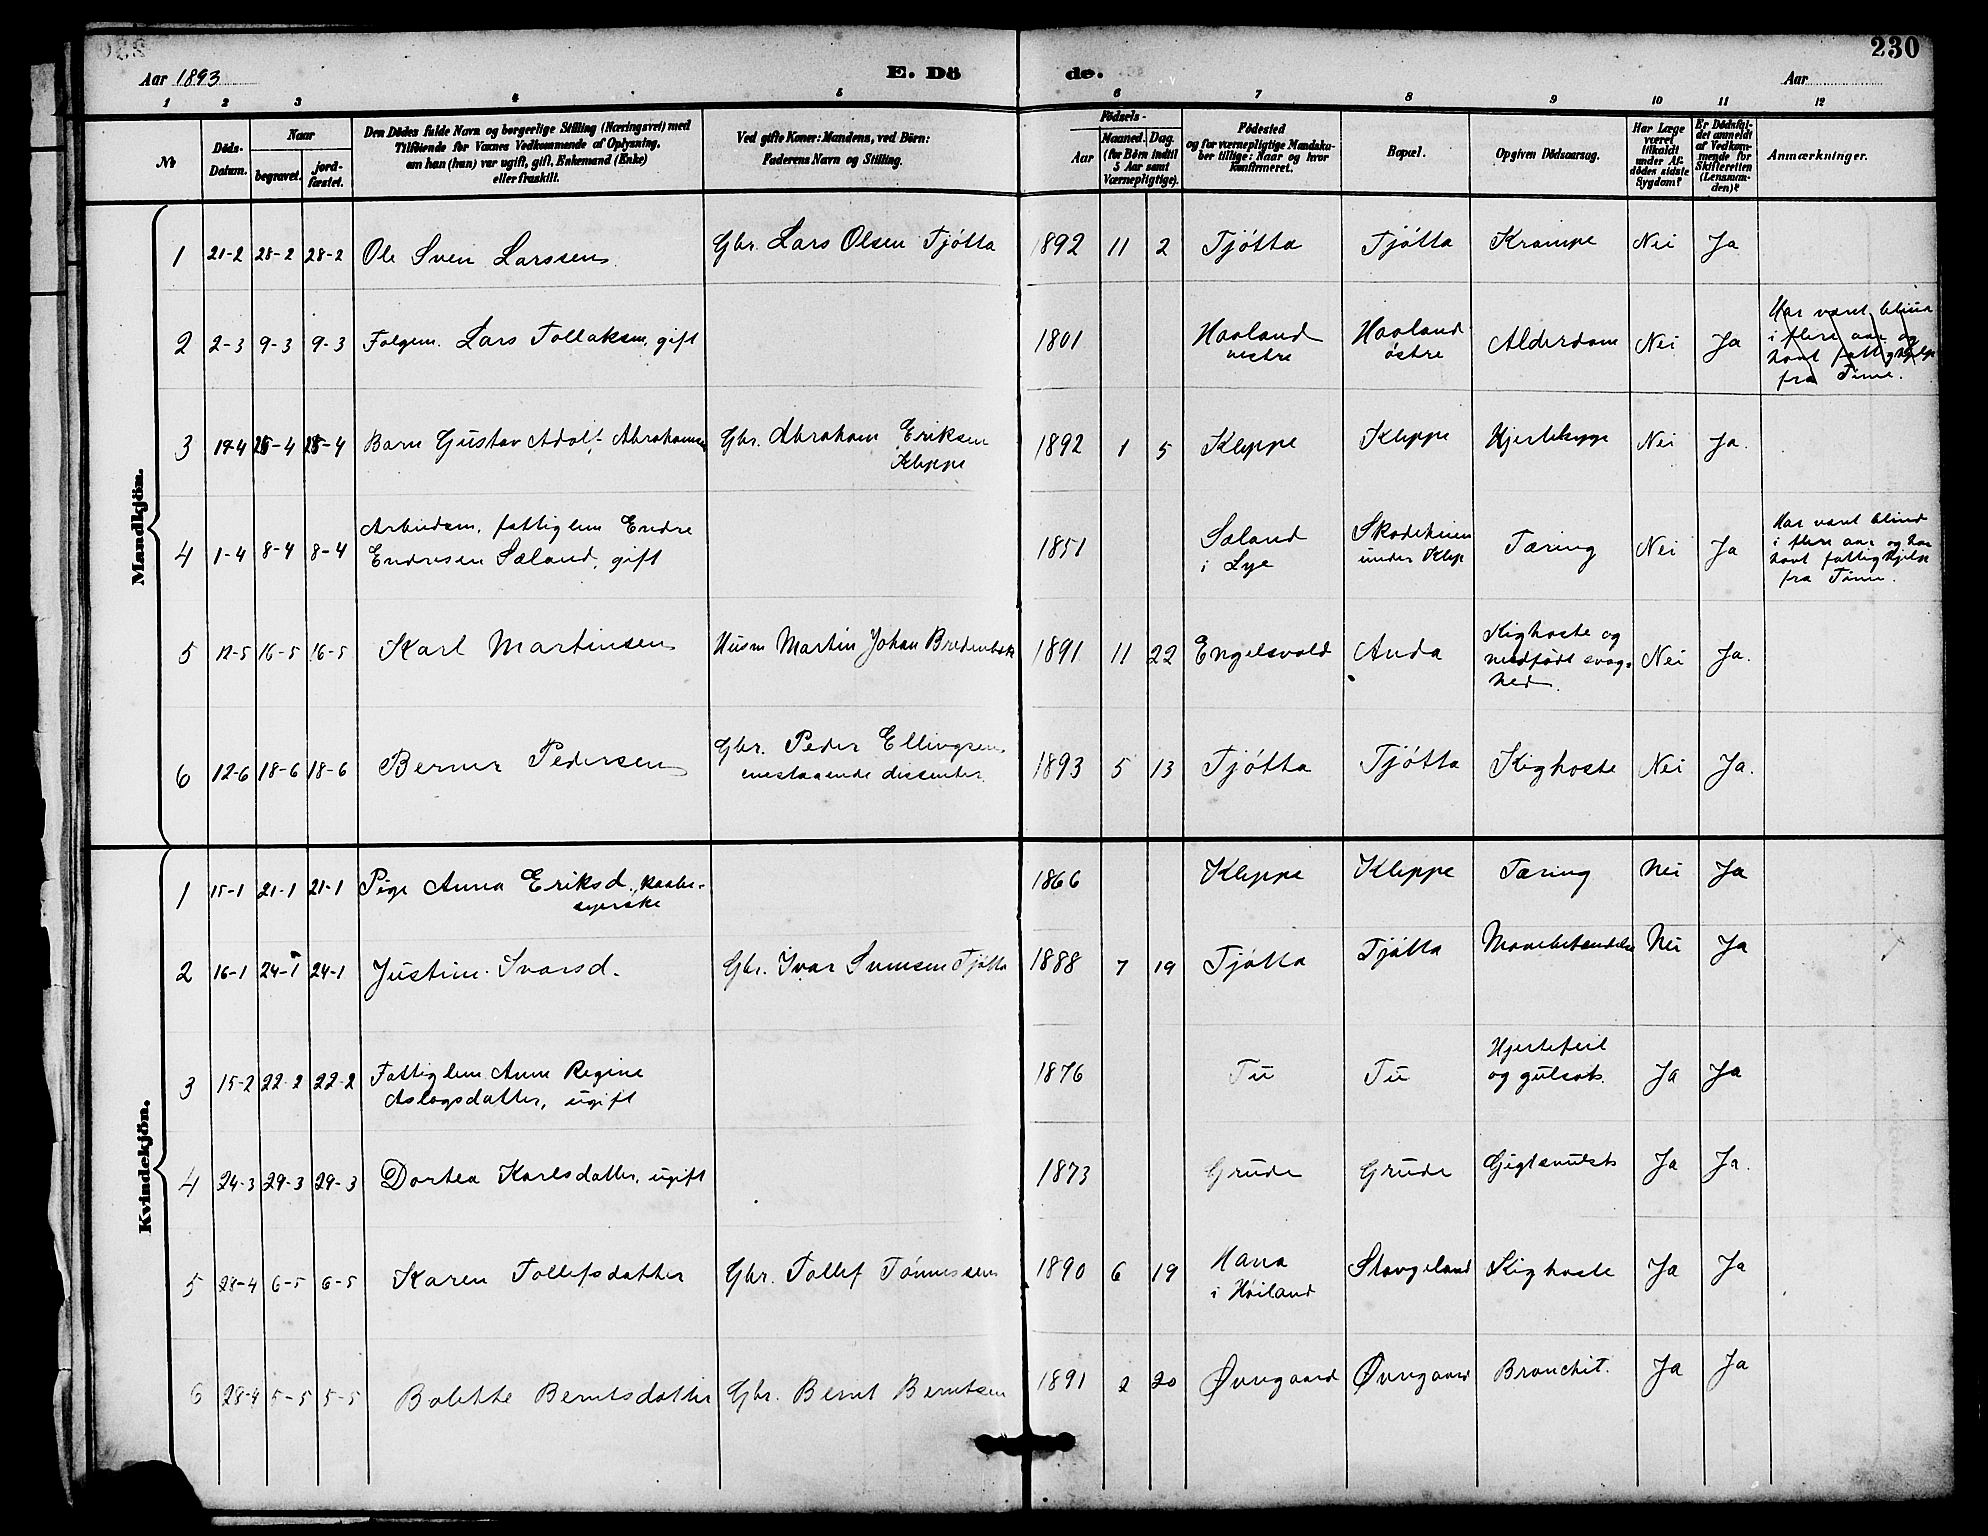 230
Aar 1893
E. Dö de.
Aar
1 2 3 4 5 6 7 8 9 10 11 12
№
Döds-Datum.
Naar
begravet.
jordfæstet.
Den Dödes fulde Navn og borgerlige Stilling (Næringsvei) med
Tilföiende for Voxnes Vedkommende af Oplysning,
om han (hun) var ugift, gift, Enkemand (Enke)
eller fraskilt.
Ved gifte Koner: Mandens, ved Börn:
Faderens Navn og Stilling.
Födsels-
Aar
Maaned. Dag.
(for Börn indtil
5 Aar samt
Værnepligtige).
Födested
og for værnepligtige Mandska-
ber tillige: Naar og hvor
konfirmeret.
Bopæl.
Opgiven Dödsaarsag.
Har Læge
været
tilkaldt
under Af-
dödes sidste
Sygdom?
Er Dödsfal-
det anmeldt
af Vedkom-
mende for
Skifteretten
(Lensman-
den)?
Anmærkninger.
Mandkjön.
1 21-2 28-2 28-2 Ole Sven Larssen Gbr. Lars Olsen Tjótta 1892 11 2 Tjótta Tjótta Krampe Nei Ja
2 2-3 9-3 9-3 Folgem. Lars Tollaksen, gift 1801 Haaland vestre Haaland östre Alderdom Nei Ja
Har været blind
i flere aar og
havt fattighjelp
fra Time.
3 17-4 25-4 25-4 Barn Gustav Adolf Abrahamsen Gbr. Abraham Eriksen
Kleppe
1892 1 5 Kleppe Kleppe Hjertesyge Nei Ja.
4 1-4 8-4 8-4 Arbeidsm. fattiglem Endre
Endresen Sæland, gift
1851 Sæland
i Lye
Skadeheien
under Klep
Tæring Nei Ja
Har været blind
i flere aar og har
havt fattighjelp
fra Time.
5 12-5 16-5 16-5 Karl Martinsen Husm Martin Johan 1891 11 22 Engelsvold Anda
Kighoste og
medfödt svag-
hed.
Nei Ja.
6 12-6 18-6 18-6 Berner Pedersen Gbr. Peder Ellingsen,
enestaaende dissenter.
1893 5 13 Tjótta Tjótta Kighoste Nei Ja.
Kvindekjön.
1 15-1 21-1 21-1 Pige Anna Eriksd., kaabe-
syerske
1866 Kleppe Kleppe Tæring Nei Ja
2 16-1 24-1 24-1 Justine Ivarsd. Gbr. Ivar Svensen Tjótta 1888 7 19 Tjótta Tjótta Mavebetændelse Nei Ja
3 15-2 22-2 22-2 Fattiglem Anne Regine
Aslagsdatter, ugift
1876 Tu Tu
Hjertefeil
og gulsot.
Ja Ja
4 24-3 29-3 29-3 Dortea Karlsdatter, ugift 1873 Grude Grude Gigtsvulst Ja Ja.
5 28-4 6-5 6-5 Karen Tollefsdatter Gbr. Tollef Tónnessen 1890 6 19 Hana
i Höiland
Stavgeland Kighoste Ja Ja
6 28-4 5-5 5-5 Bolette Berntsdatter Gbr. Bernt Berntsen 1891 2 20 Øvregaard Øvregaard Bronchit. Ja Ja